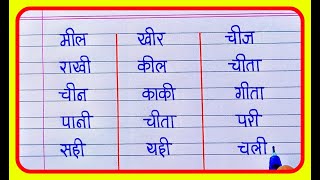 मील खीर चीज
राखी कील चीता
चीन काकी गीता
पानी चीता परी
सही यही चली